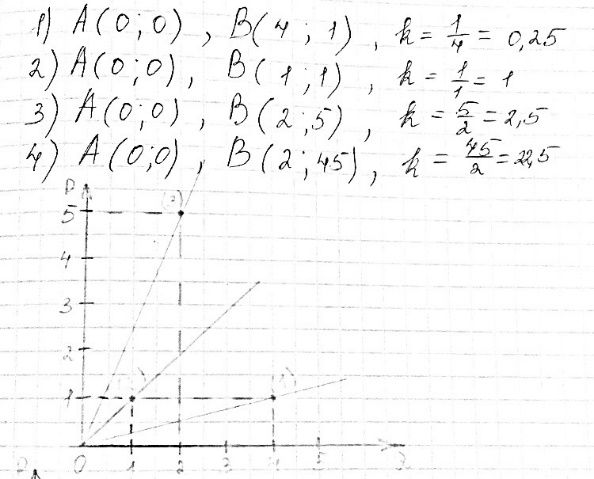 1) A(0;0), B(4;1), k = 1/4 = 0,25
2) A(0;0), B(1;1), k = 1/1 = 1
3) A(0;0), B(2;5), k = 5/2 = 2,5
4) A(0;0), B(2;45), k = 45/2 = 22,5
P
5
4
3
2
1
0 1 2 3 4 5